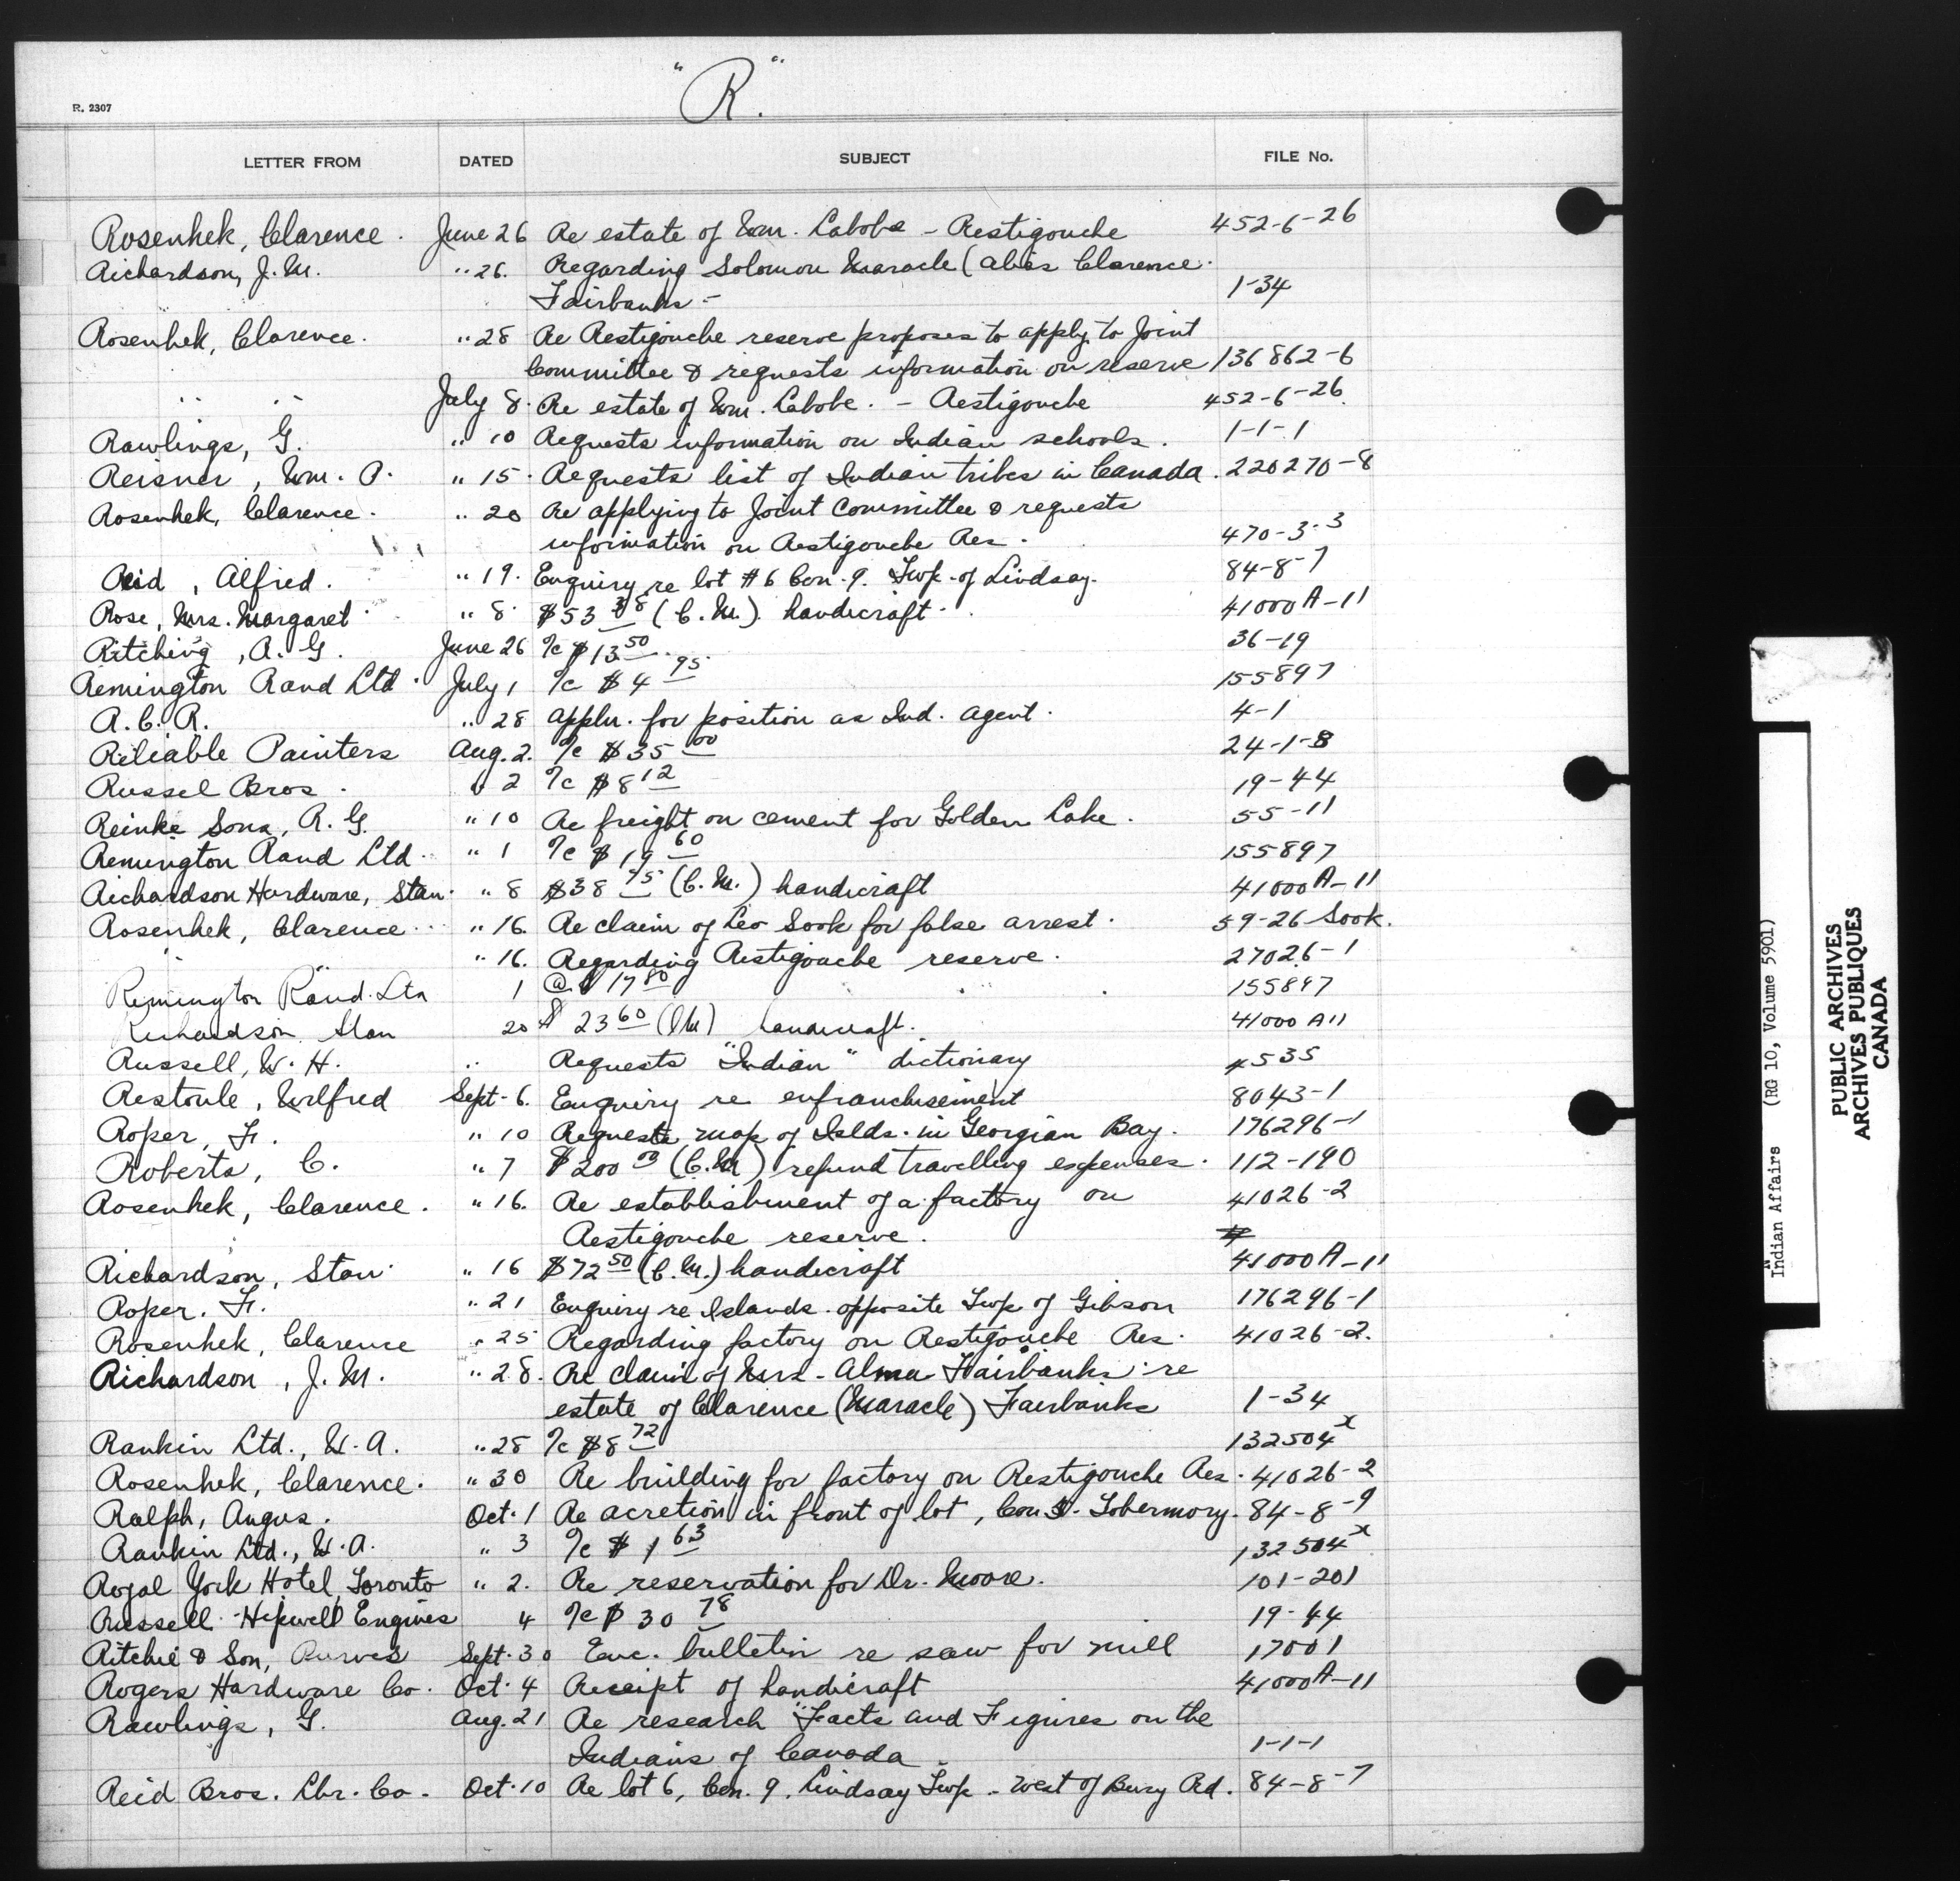 "R."
R. 2307
LETTER FROM DATED SUBJECT FILE No.
Rosenhek, Clarence. June 26 Re estate of Wm. Labobe - Restigouche 452-6-26
Richardson, J. M. " 26. Regarding Solomon Maracle (alias Clarence
Fairbanks - 1-34
Rosenhek, Clarence. " 28 Re Restigouche reserve proposes to apply to Joint
Committee & requests information on reserve 136862-6
" " July 8. Re estate of Wm. Labobe. - Restigouche 452-6-26.
Rawlings, G. " 10 Requests information on Indian schools. 1-1-1
Reisner, Wm. P. " 15. Requests list of Indian tribes in Canada. 220270-8
Rosenhek, Clarence. " 20 Re applying to Joint Committee & requests
information on Restigouche Res. 470-3-3
Reid, Alfred. " 19. Enquiry re lot #6 Con. 9. Twp. of Lindsay. 84-8-7
Rose, Mrs. Margaret " 8. $53 38 (C.M.) handicraft. 41000 A-11
Ritching, A. G. June 26 %c $13 50 36-19
Remington Rand Ltd. July 1 %c $4 95 155897
R.C.R. " 28 appln. for position as Ind. agent. 4-1
Reliable Painters Aug. 2. %c $35 00 24-1-8
Russel Bros. " 2 %c $8 12 19-44
Reinke Sons, R. G. " 10 Re freight on cement for Golden Lake. 55-11
Remington Rand Ltd. " 1 %c $19 60 155897
Richardson Hardware, Stan. " 8 $38 75 (C.M.) handicraft 41000 A-11
Rosenhek, Clarence " 16. Re claim of Leo Sook for false arrest. 59-26 Sook.
" 16. Regarding Restigouche reserve. 27026-1
Remington Rand Ltd 1 @ $ 17 80 155897
Richardson Stan 20 $ 23 60 (CM) handicraft. 41000 A11
Russell, W. H. " Requests "Indian" dictionary 4535
Restoule, Wilfred Sept. 6. Enquiry re enfranchisement 8043-1
Roper, Fr. " 10 Requests map of Islds. in Georgian Bay. 176296-1
Roberts, C. " 7 $200 (C.M) refund travelling expenses. 112-190
Rosenhek, Clarence. " 16. Re establishment of a factory on 41026-2
Restigouche reserve.
Richardson, Stan. " 16 $72 50 (C.M.) handicraft 41000 A-11
Roper. Fr. " 21 Enquiry re Islands opposite Twp of Gibson 176296-1
Rosenhek, Clarence " 25 Regarding factory on Restigouche Res. 41026-2.
Richardson, J. M. " 28. Re claim of Mrs. Alma Fairbanks re
estate of Clarence (Maracle) Fairbanks 1-34
Rankin Ltd., W. A. " 28 %c $8 72 132504 x
Rosenhek, Clarence. " 30 Re building for factory on Restigouche Res. 41026-2
Ralph, Angus. Oct. 1 Re acretion in front of lot, Con. Tobermory. 84-8-9
Rankin Ltd., W. A. " 3 %c $1 63 132504 x
Royal York Hotel, Toronto " 2. Re reservation for Dr. Moore. 101-201
Russell Hipwell Engines 4 %c $30 78 19-44
Ritchie & Son, Purves Sept. 30 Enc. bulletin re saw for mill 17001
Rogers Hardware Co. Oct. 4 Receipt of handicraft 41000 A-11
Rawlings, G. Aug. 21 Re research "Facts and Figures on the
Indians of Canada 1-1-1
Reid Bros. Lbr. Co. Oct. 10 Re lot 6, Con. 9, Lindsay Twp. - West of Bury Rd. 84-8-7
Indian Affairs (RG 10, Volume 5901)
PUBLIC ARCHIVES
ARCHIVES PUBLIQUES
CANADA